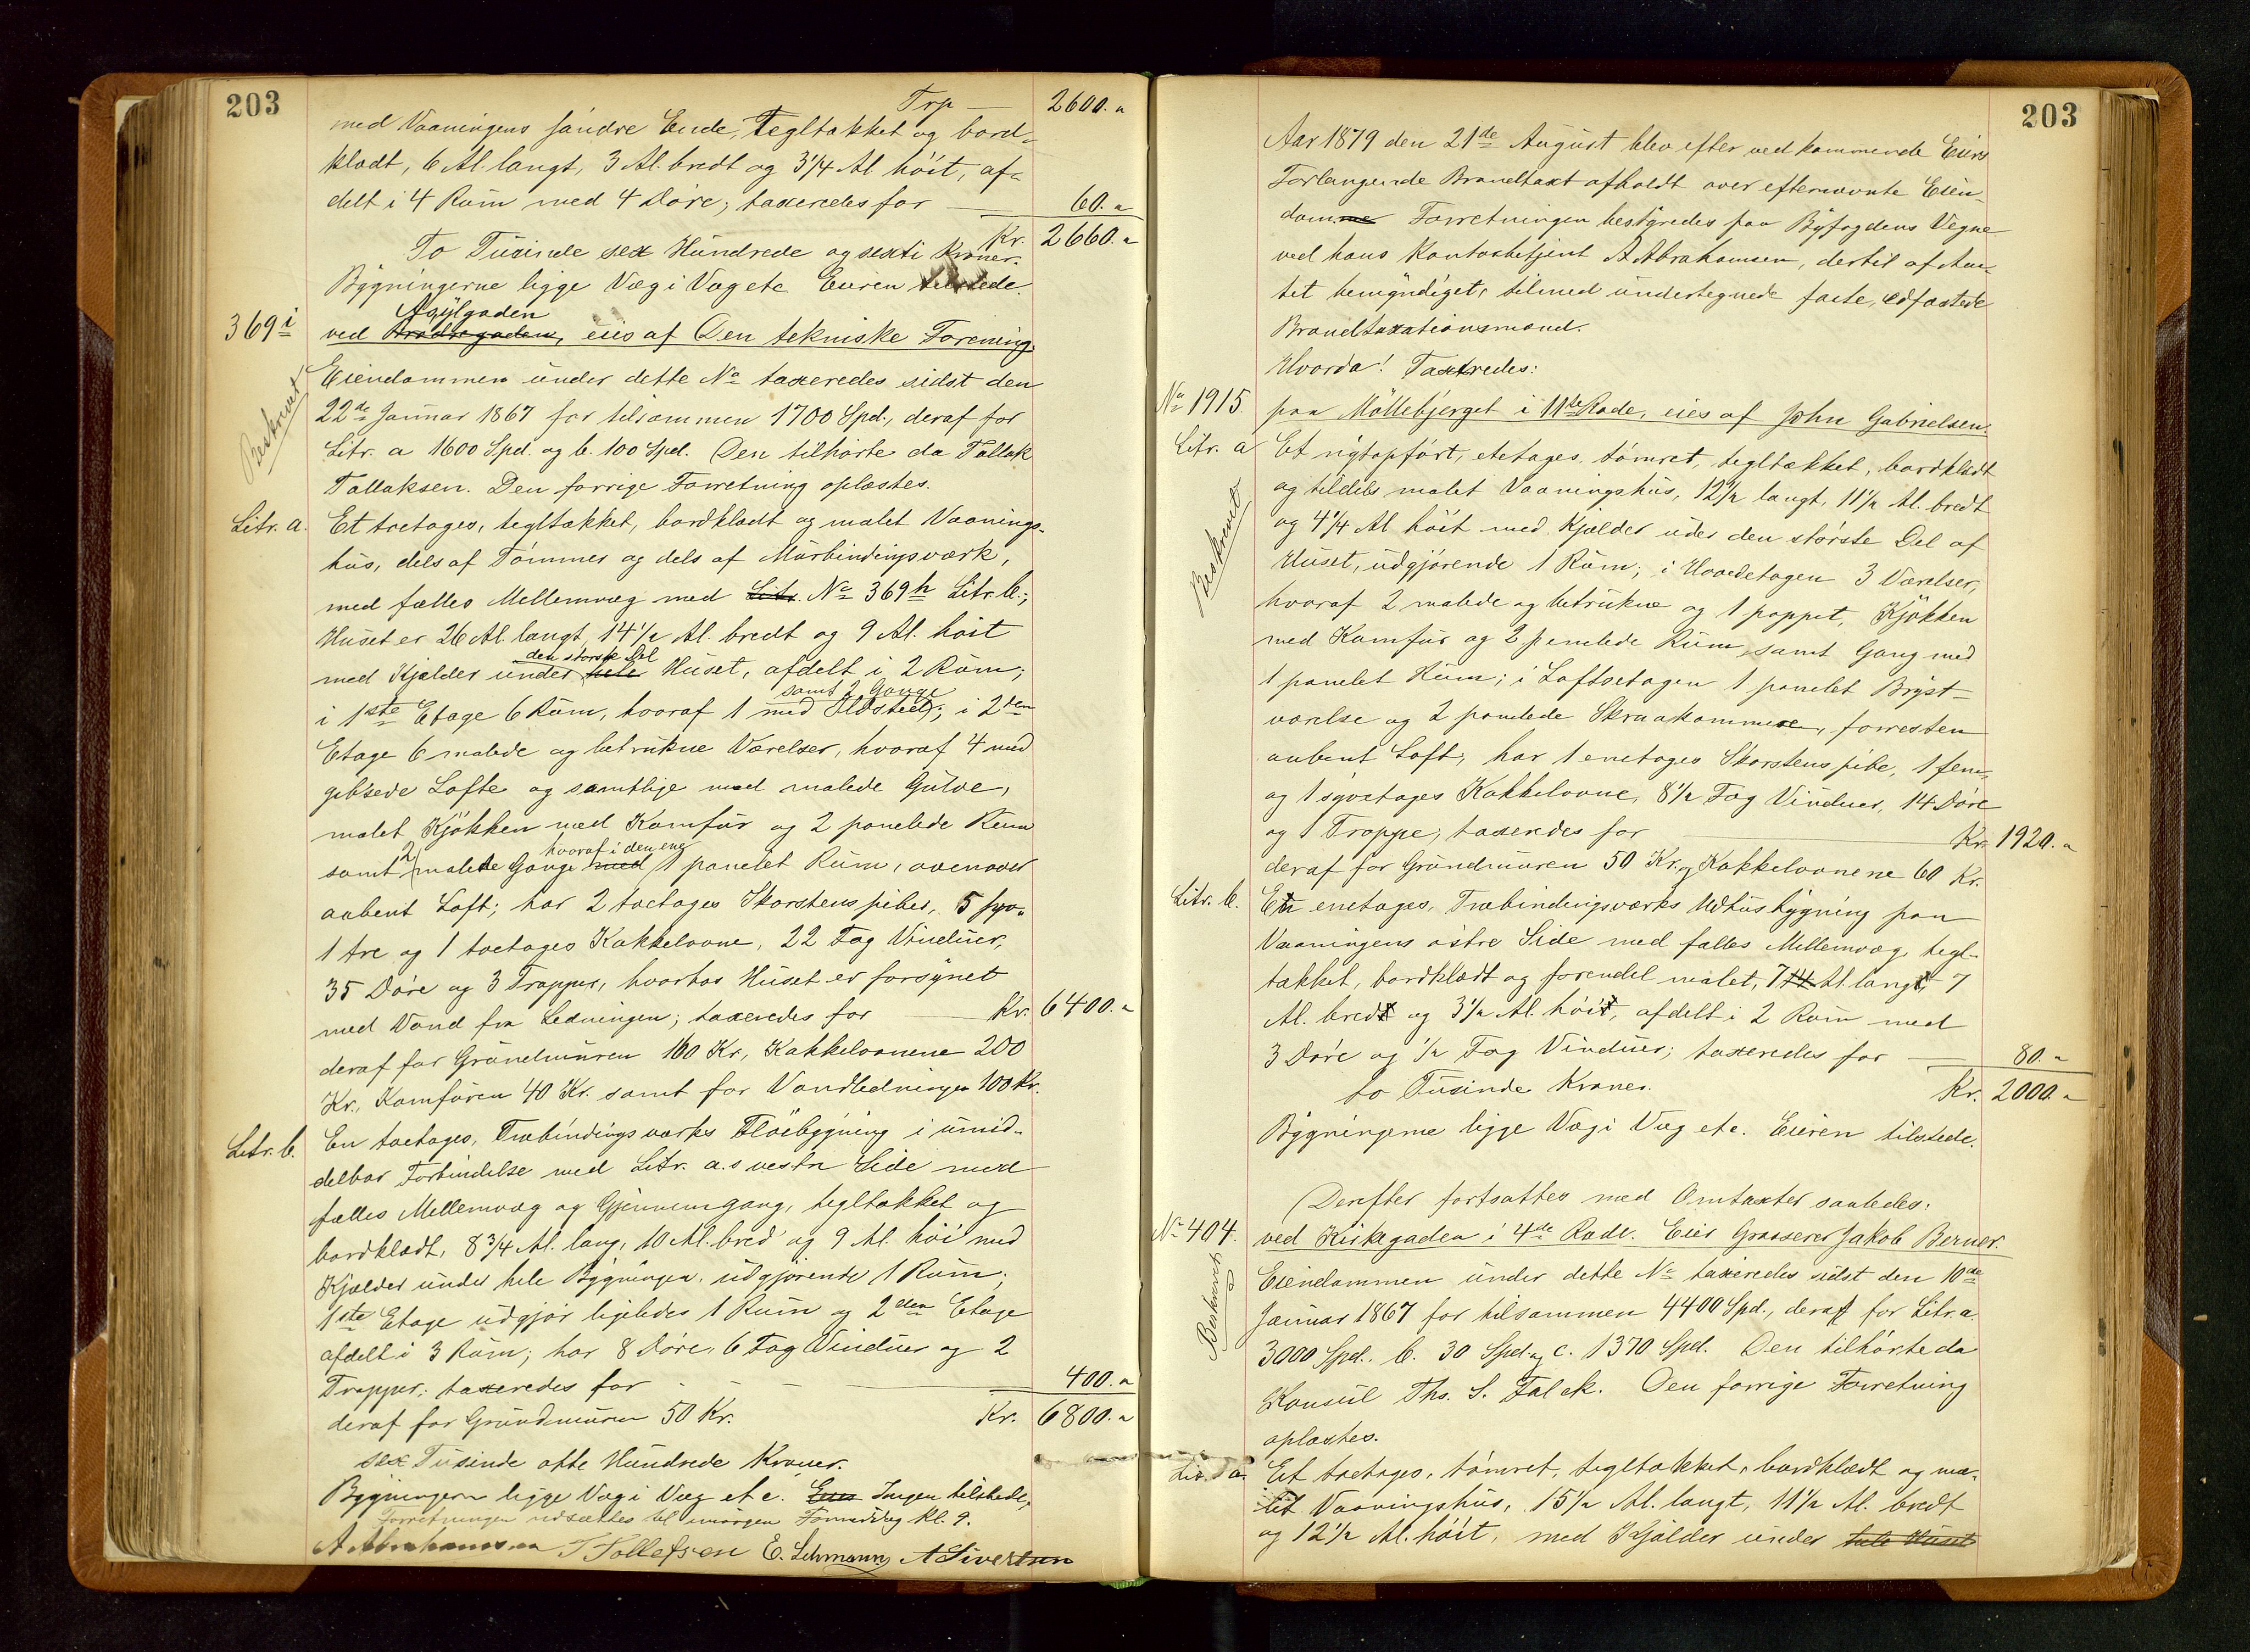 203
Trp — 2600. "
med Vaaningens søndre Ende, tegltækket og bord-
klædt, 6 Al. langt, 3 Al. bredt og 3 1/4 Al höit, af-
delt i 4 Rüm med 4 Döre; taxeredes for — 60. "
Kr. 2660. "
To Tüsinde sex Hündrede og sexti Kroner.
Bÿgningerne ligge Væg i Væg etc Eieren tilstede.
Beskrevet
369 i ved Bredsegaden, eies af Den tekniske Forening.
Eiendommen ünder dette No taxeredes sidst den
22de Janüar 1867 for tilsammen 1700 Spd., deraf for
Litr. a 1600 Spd. og b. 100 Spd. Den tilhörte da Tallak
Tallaksen. Den forrige Forretning oplæstes.
Litr. a. Et toetages, tegltækket, bordklædt og malet Vaanings-
hüs, dels af Tömmer og dels af Mürbindingsværk,
med fælles Mellemvæg med Litr. No 369 h Litr. b.;
Hüset er 26 Al. langt, 14 1/2 Al. bredt og 9 Al. höit
den störste Del
med Kjælder ünder hele Hüset, afdelt i 2 Rüm;
samt 2 Gange
i 1ste Etage 6 Rüm, hvoraf 1 med Ildsted; i 2den
Etage 6 malede og betrükne Værelser, hvoraf 4 med
gibsede Lofte og samtlige med malede Gülve,
malet Kjökken med Komfür og 2 panelede Rüm
hvoraf i den ene
samt 2 malede Gange med 1 panelet Rüm, ovenover
aabent Loft; har 2 toetages Skorstenspiber, 5 syv-
1 tre og 1 toetages Kakkelovne, 22 Fag Vindüer,
35 Döre og 3 Trapper, hvorhos Hüset er forsÿnet
med Vand fra Ledningen; taxeredes for — Kr. 6400. "
deraf for Gründmüren 160 Kr, Kakkelovnene 200
Kr., Komfüren 40 Kr. samt for Vandledningen 100 Kr.
Litr. b. En toetages, Træbindingsværks Flöibÿgning i ümid-
delbar Forbindelse med Litr. a.s vestre Side med
fælles Mellemvæg og Gjennemgang, tegltækket og
bordklædt, 8 3/4 Al. lang, 10 Al. bred og 9 Al. höi med
Kjælder ünder hele Bÿgningen, üdgjörende 1 Rüm;
1ste Etage üdgjör ligeledes 1 Rüm og 2den Etage
afdelt i 3 Rüm; har 8 Döre, 6 Fag Vindüer og 2
Trapper; taxeredes for — 400. "
deraf for Gründmüren 50 Kr. Kr. 6800. "
sex Tüsinde otte Hündrede Kroner.
Bÿgningerne ligge Væg i Væg etc. Eier Ingen tilstede,
Forretningen üdsættes til imorgen Formiddag Kl. 9.
A Abrahamsen T Tollefsen E. Lehmann A Sivertsen
203
Aar 1879 den 21de Aügüst blev efter vedkommende Eiers
Forlangende Brandtaxt afholdt over efternævnte Eien-
dom.me Forretningen bestÿredes paa Bÿfogdens Vegne
ved hans Kontorbetjent A Abrahamsen, dertil af Am-
tet bemÿndiget, tilmed ündertegnede faste, edfæstede
Brandtaxationsmænd.
Hvorda! Taxeredes:
No 1915. paa Möllebjerget i 11te Rode, eies af John Gabrielsen.
Beskrevet
Litr. a Et nÿtopfört, etetages, tömret, tegltækket, bordklædt
og tildels malet Vaaningshüs, 12 1/2 langt, 11 1/2 Al. bredt
og 4 1/4 Al höit med Kjælder üder den störste Del af
Hüset, üdgjörende 1 Rüm; i Hovedetagen 3 Værelser,
hvoraf 2 malede og betrükne og 1 pappet, Kjökken
med Komfür og 2 panelede Rüm, samt Gang med
1 panelet Rüm; i Loftsetagen 1 panelet Brÿst-
værelse og 2 panelede Skraakammere, forresten
aabent Loft; har 1 enetages Skorstenspibe, 1 fem-
og 1 sÿvetages Kakkelovne, 8 1/2 Fag Vindüer, 14 Döre
og 1 Trappe; taxeredes for — Kr. 1920. "
deraf for Gründmüren 50 Kr. og Kakkelovnene 60 Kr.
Litr. b. En enetages, Træbindingsværks Udhüsbÿgning paa
Vaaningens östre Side med fælles Mellemvæg, tegl-
tækket, bordklædt og forendel malet, 7 1/4 Al. lang, 7
Al. bred og 3 1/2 Al. höi, afdelt i 2 Rüm med
3 Döre og 1/2 Fag Vindüer; taxeredes for — 80. "
to Tüsinde Kroner. Kr. 2000. "
Bÿgningerne ligge Væg i Væg etc. Eieren tilstede.
Derefter fortsattes med Omtaxter saaledes:
No 404. ved Kirkegaden i 4de Rode. Eier Grosserer Jakob Berner.
Beskrevet
Eiendommen ünder dette No taxeredes sidst den 10de
Janüar 1867 for tilsammen 4400 Spd., deraf for Litr. a
3000 Spd., b. 30 Spd. og c. 1370 Spd. Den tilhörte da
Konsül Ths. S. Falck. Den forrige Forretning
oplæstes.
Litr. a. Et toetages, tömret, tegltækket, bordklædt og ma-
let Vaaningshüs, 15 1/2 Al. langt, 11 1/2 Al. bredt
og 12 1/2 Al. höit, med Kjælder ünder hele Hüset